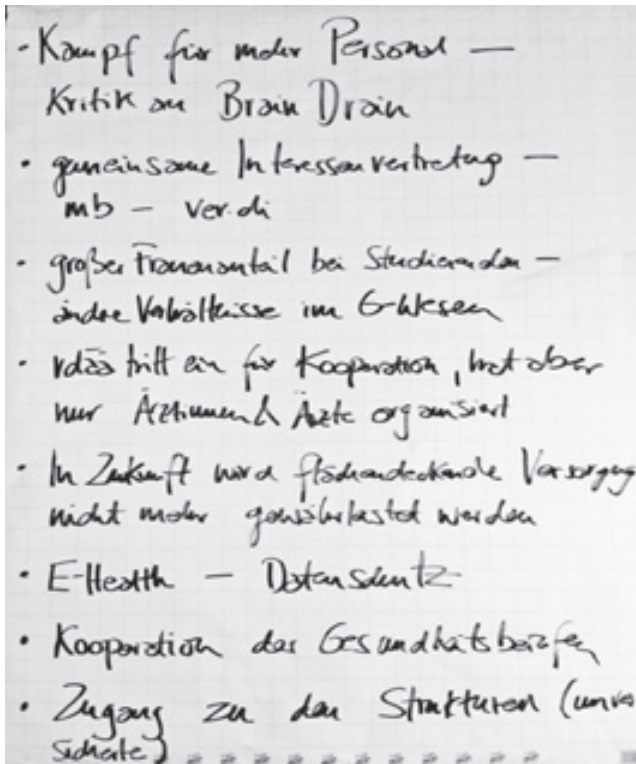 · Kampf für mehr Personal —
Kritik am Brain Drain
· gemeinsame Interessenvertretung —
mb – ver.di
· großer Frauenanteil bei Studierenden –
ändre Verhältnisse im G-Wesen
· vdää tritt ein für Kooperation, hat aber
nur Ärztinnen & Ärzte organisiert
· In Zukunft wird flächendeckende Versorgung
nicht mehr gewährleistet werden
· E-Health – Datenschutz
· Kooperation der Gesundheitsberufen
· Zugang zu den Strukturen